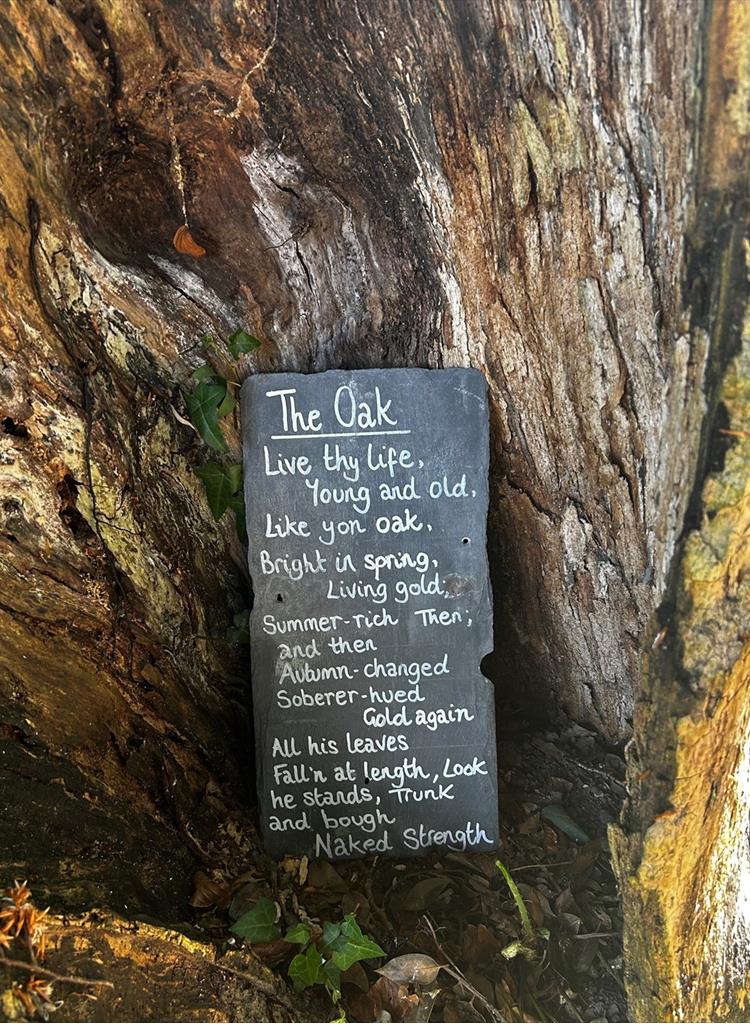 The Oak
Live thy life,
Young and old,
Like yon oak,
Bright in spring,
Living gold;
Summer-rich Then;
and then
Autumn-changed
Soberer-hued
Gold again
All his leaves
Fall'n at length, Look
he stands, Trunk
and bough
Naked Strength